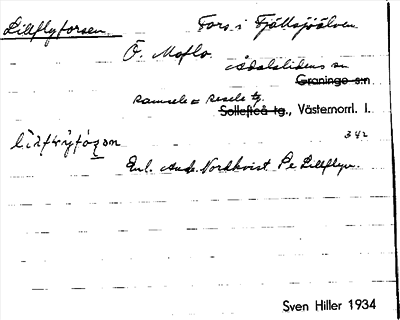 Lillflyforsen. Fors i Fjällsjöälven
Ö. Moflo. Ådalslidens sn
Graninge s:n
Ramsele o Resele tg.
Sollefteå tg., Västernorrl. l.
342
Enl. And. Nordkvist Pe Lillflyn.
Sven Hiller 1934